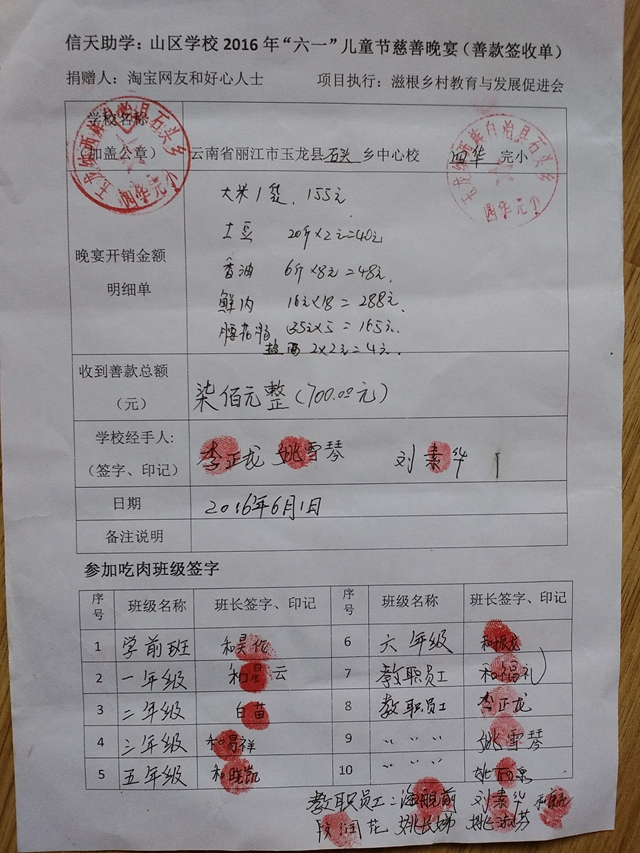 信天助学：山区学校2016年“六一”儿童节慈善晚宴（善款签收单）
捐赠人：淘宝网友和好心人士 项目执行：滋根乡村教育与发展促进会
学校名称
（加盖公章） 云南省丽江市玉龙县石头乡中心校 四华完小
大米1袋. 155元
土豆 20斤×2元=40元
晚宴开销金额
明细单
香油 6斤×8元=48元.
鲜肉 16元×18=288元.
35元×5=165元.
2×2元=4元.
收到善款总额
（元） 柒佰元整(700.00元)
学校经手人:
（签字、印记） 李正龙 姚雪琴 刘素华
日期 2016年6月1日
备注说明
参加吃肉班级签字
序号 班级名称 班长签字、印记 序号 班级名称 班长签字、印记
1 学前班 6 六年级
2 一年级 和星云 7 教职员工 和福礼
3 二年级 白苗 8 教职员工 李正龙
4 三年级 和易祥 9 〃 〃 〃 姚雪琴
5 五年级 10 〃 〃 〃
教职员工: 刘素华
段润花 姚长娣 姚淑芬